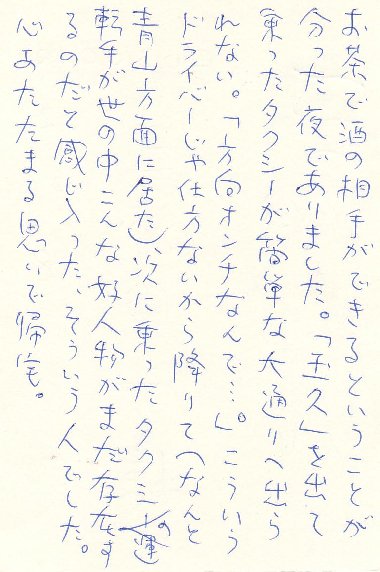 お茶で酒の相手ができるということが
分った夜でありました。「玉久」を出て
乗ったタクシーが簡単な大通りへ出ら
れない。「方向オンチなんで…」。こういう
ドライバーじゃ仕方ないから降りて(なんと
青山方面に居た)次に乗ったタクシーの運
転手が世の中こんな好人物がまだ存在す
るのだて感じ入った、そういう人でした。
心あたたまる思いで帰宅。